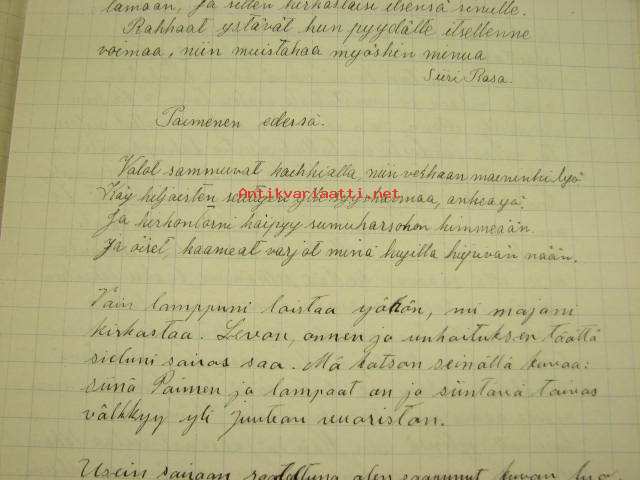 lamaan, ja sitten kirkastaisi itsensä sinulle.
Rakkaat ystävät kun pyydätte itsellenne
voimaa, niin muistakaa myöskin minua
Siiri Rasa.
Paimenen edessä.
Valot sammuvat kaikkialta, niin vekkaan mainenki työ
Antikvariaatti.net
Käy hiljaisten yli syysilmaa, ankea yö
Ja kirkontorni häipyy sumuharsohon himmeään
Ja öiset, kaameat varjot minä kujilla hiipivän nään.
Vain lamppuni loistaa yöhön, mi majani
kirkastaa. Levon, onnen ja unhoituksen täältä
sieluni sairas saa. Mä katson seinältä kuvaa:
siinä Paimen ja lampaat on ja siintävä taivas
välkkyy yli juutean vuoriston.
Usein sairaan raatettuna olen saapunut kuvan luo,